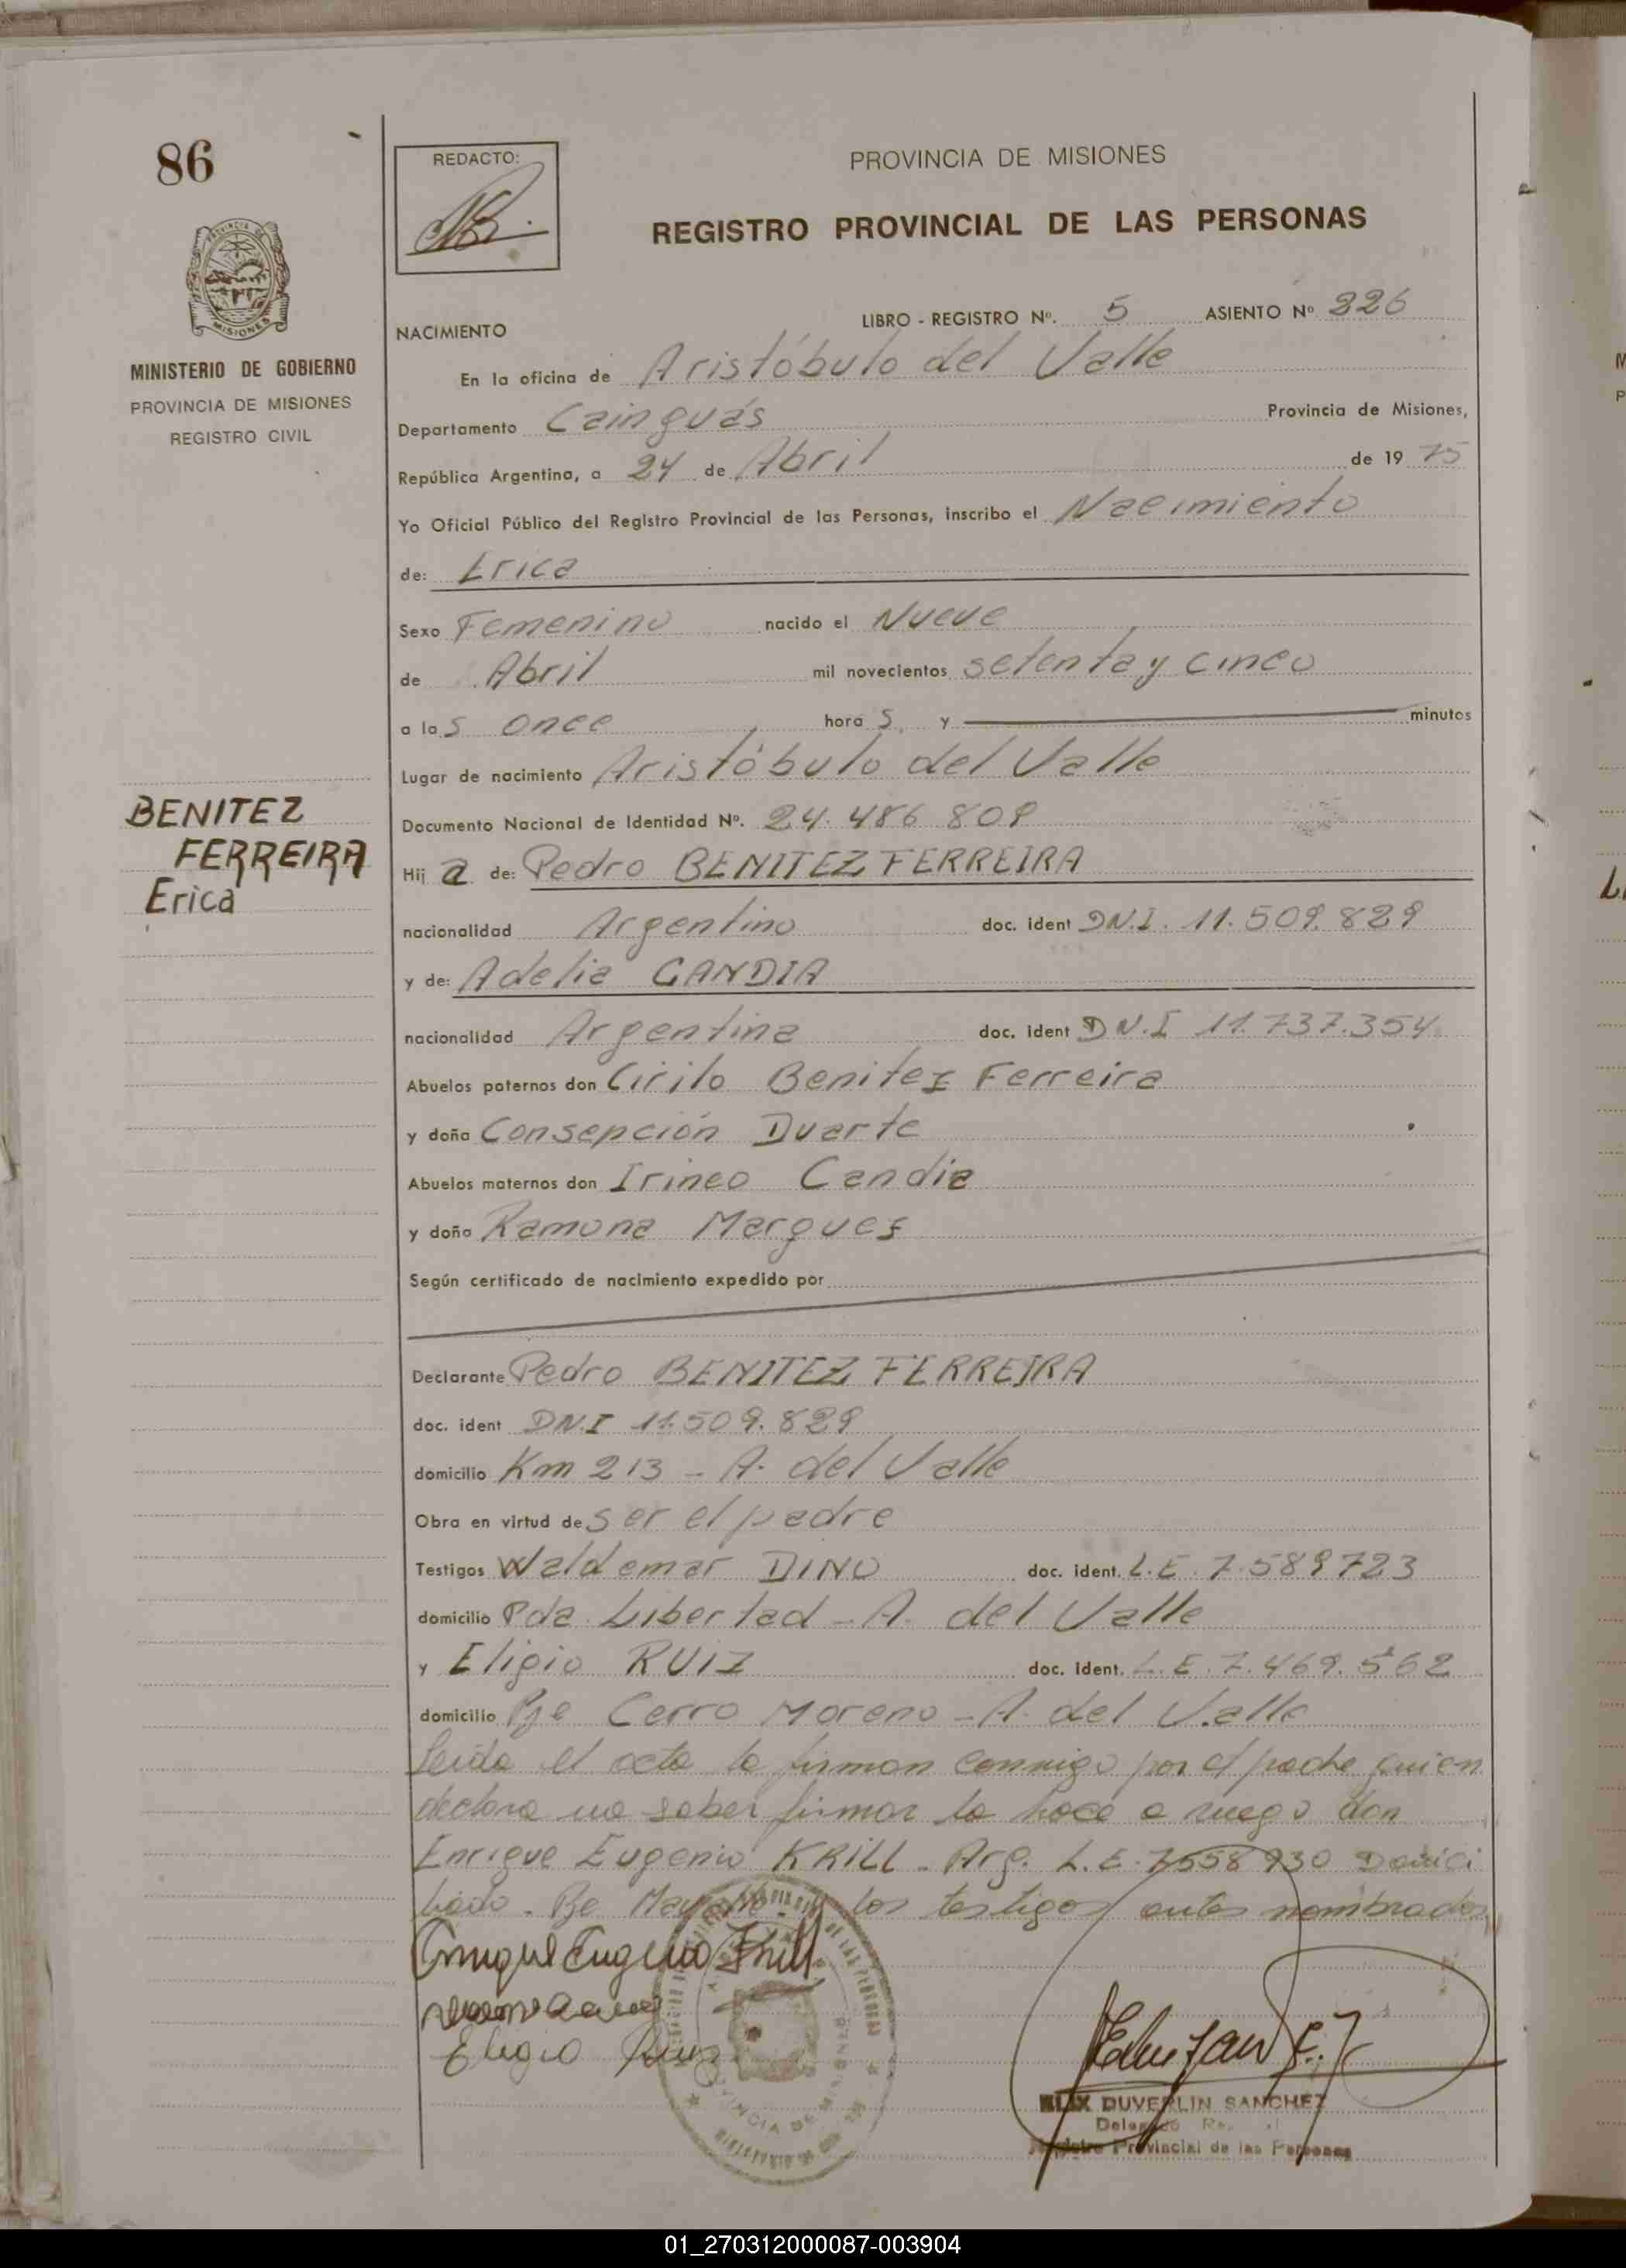 86
REDACTO:
PROVINCIA DE MISIONES
REGISTRO PROVINCIAL DE LAS PERSONAS
MISIONES
MINISTERIO DE GOBIERNO
PROVINCIA DE MISIONES
REGISTRO CIVIL
LIBRO - REGISTRO Nº. 5 ASIENTO Nº 226
NACIMIENTO
En la oficina de Aristóbulo del Valle
Departamento Cainguás Provincia de Misiones,
República Argentina, a 24 de Abril de 19 75
Yo Oficial Público del Registro Provincial de las Personas, inscribo el Nacimiento
de: Erica
Sexo Femenino nacido el Nueve
de Abril mil novecientos setenta y cinco
a las once horas y minutos
Lugar de nacimiento Aristóbulo del Valle
BENITEZ
FERREIRA
Erica
Documento Nacional de Identidad Nº. 24.486 809
Hija de: Pedro BENITEZ FERREIRA
nacionalidad Argentino doc. ident D.N.I. 11.509.829
y de: Adelia CANDIA
nacionalidad Argentina doc. ident D.N.I 11.737.354
Abuelos paternos don Cirilo Benitez Ferreira
y doña Consepción Duarte
Abuelos maternos don Irineo Candia
y doña Ramona Marques
Según certificado de nacimiento expedido por
Declarante Pedro BENITEZ FERREIRA
doc. ident D.N.I 11.509.829
domicilio Km 213 - A. del Valle
Obra en virtud de ser el padre
Testigos Waldemar DINO doc. ident. L.E. 7.589723
domicilio Pda Libertad - A. del Valle
y Eligio RUIZ doc. ident. L.E. 7.469.562
domicilio Pje Cerro Moreno - A. del Valle
Leida el acta la firman conmigo por el padre quien
declara no saber firmar lo hace a ruego don
Enrique Eugenio KRILL - Arg. L.E. 7558930 Domici
liado - Pje los testigos antes nombrados
Enrique Eugenio Krill
Eligio Ruiz
PROVINCIA DE MISIONES
DUVERLIN SANCHEZ
Registro Provincial de las Personas
01_270312000087-003904